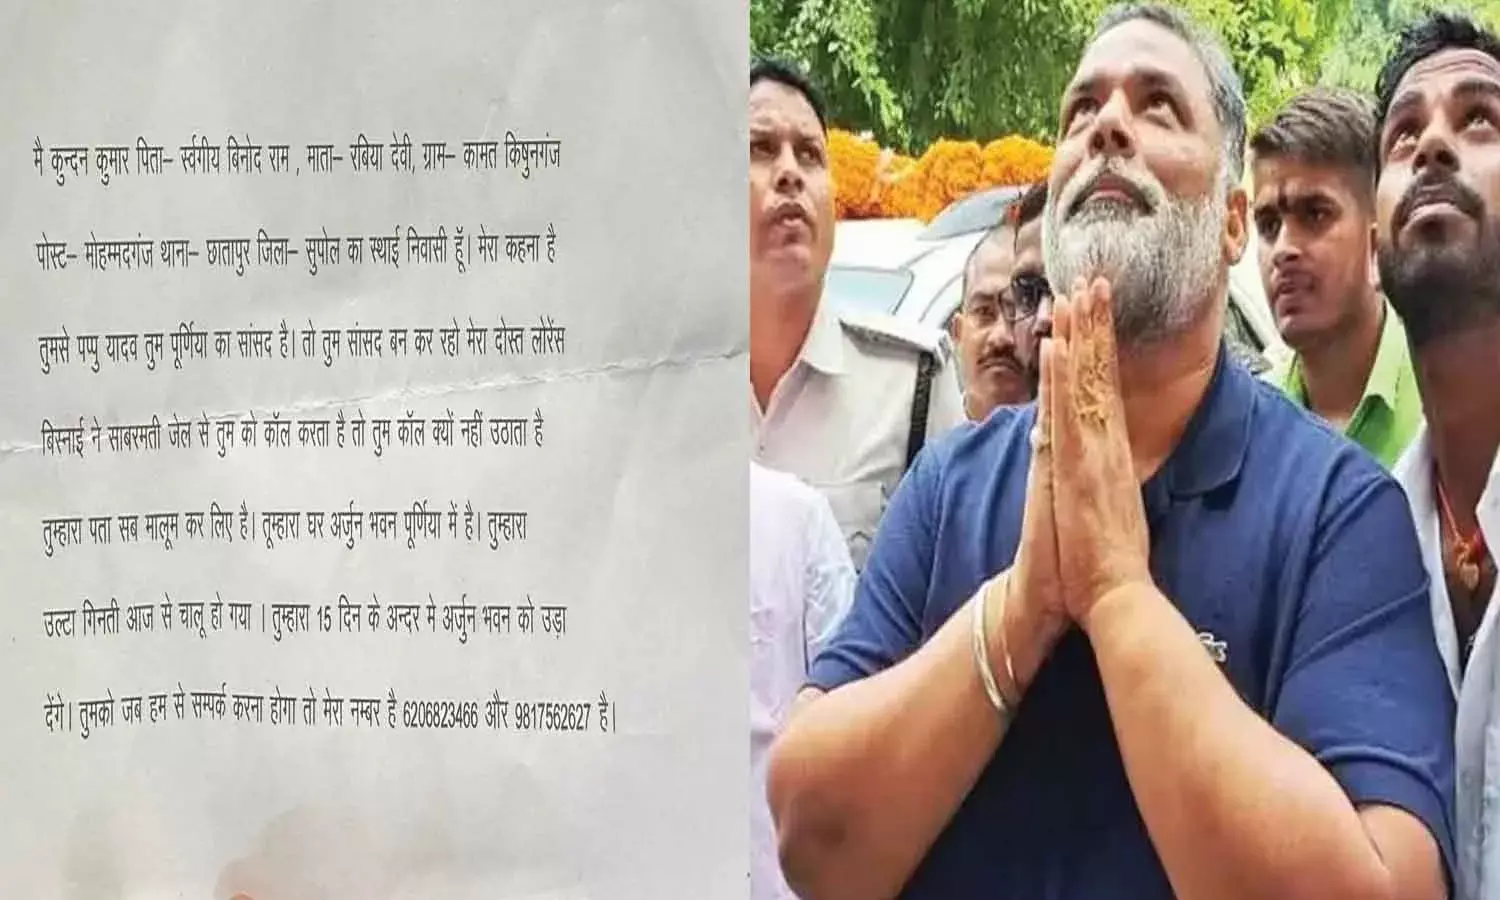 मै कुन्दन कुमार पिता– र्स्वगीय बिनोद राम , माता– रबिया देवी, ग्राम– कामत किषुनगंज
पोस्ट– मोहम्मदगंज थाना– छातापुर जिला– सुपोल का स्थाई निवासी हूॅ। मेरा कहना है
तुमसे पप्पु यादव तुम पूर्णिया का सांसद है। तो तुम सांसद बन कर रहो मेरा दोस्त लोरेंस
बिस्नाई ने साबरमती जेल से तुम को कॉल करता है तो तुम कॉल क्यों नहीं उठाता है
तुम्हारा पता सब मालूम कर लिए है। तूम्हारा घर अर्जुन भवन पूर्णिया में है। तुम्हारा
उल्टा गिनती आज से चालू हो गया । तुम्हारा 15 दिन के अन्दर मे अर्जुन भवन को उड़ा
देंगे। तुमको जब हम से सम्पर्क करना होगा तो मेरा नम्बर है 6206823466 और 9817562627 है।